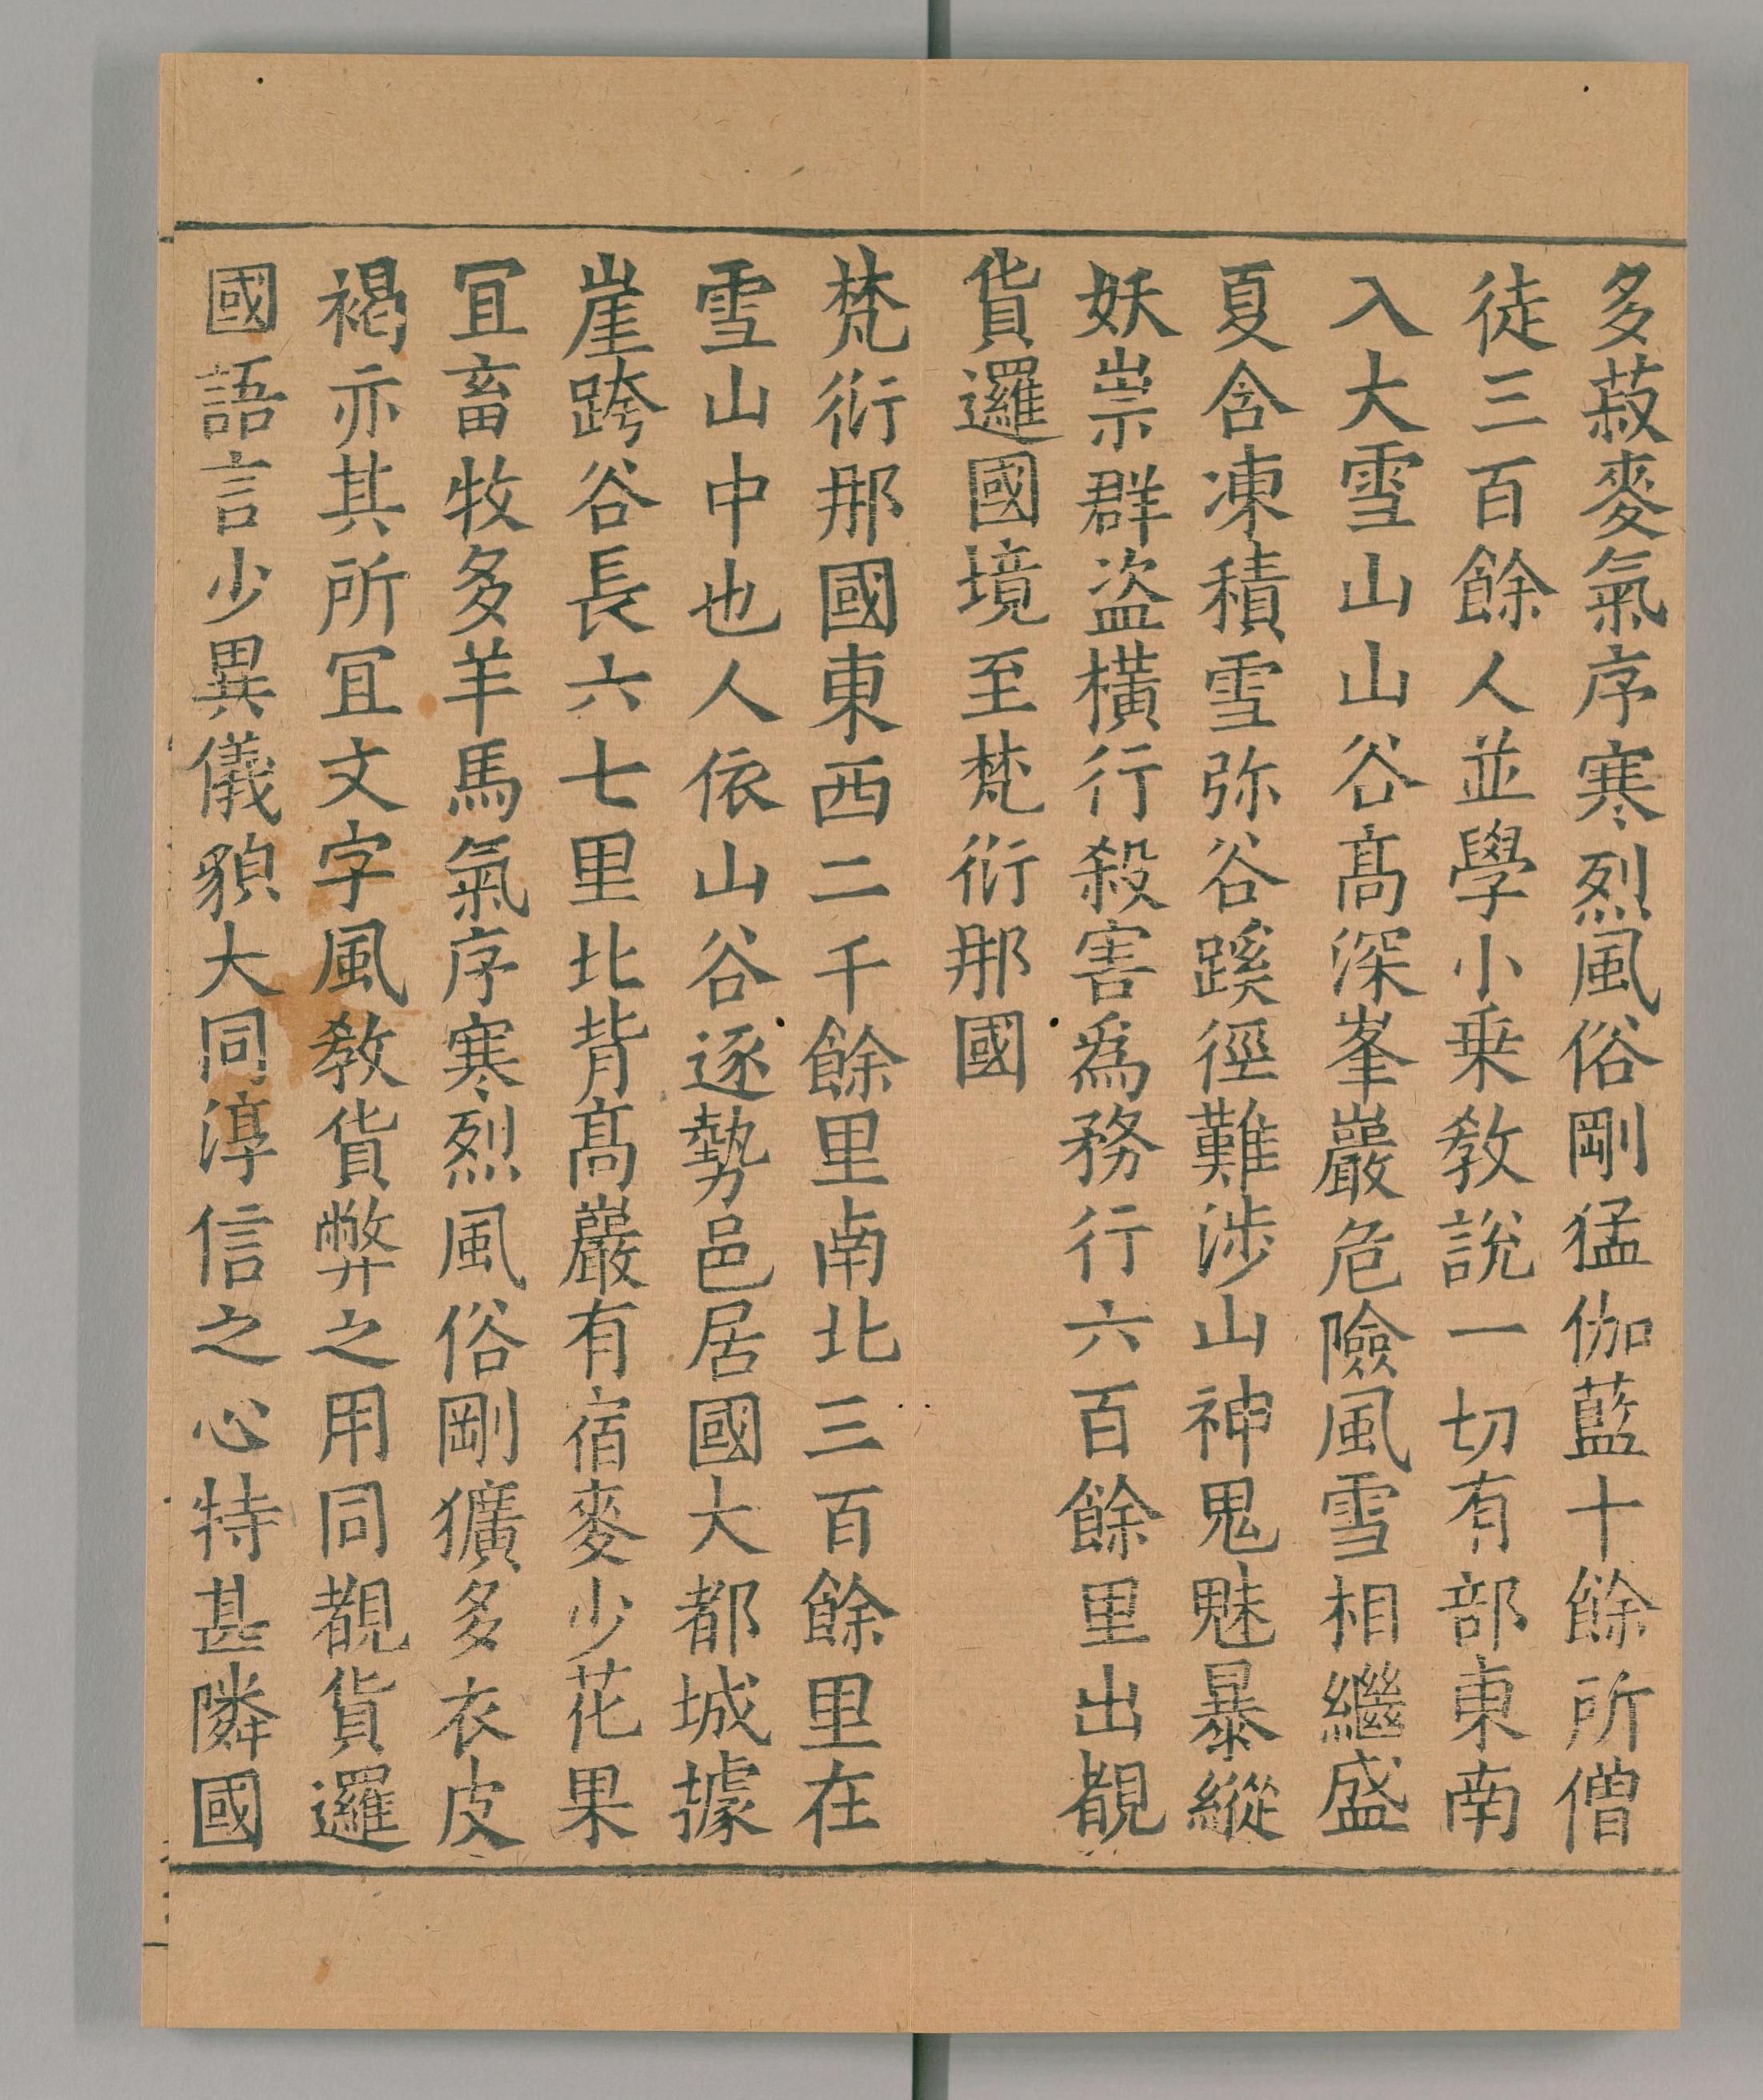 多菽麥氣序寒烈風俗剛猛伽藍十餘所僧
徒三百餘人並學小乗教說一切有部東南
入大雪山山谷髙深峯巖危險風雪相繼盛
夏含凍積雪弥谷蹊徑難涉山神鬼魅暴縱
妖祟群盗橫行殺害爲務行六百餘里出覩
貨邏國境至梵衍那國
梵衍那國東西二千餘里南北三百餘里在
雪山中也人依山谷逐勢邑居國大都城據
崖跨谷長六七里北背髙巖有宿麥少花果
冝畜牧多羊馬氣序寒烈風俗剛獷多衣皮
褐亦其所冝文字風教貨弊之用同覩貨邏
國語言少異儀貌大同淳信之心特甚隣國